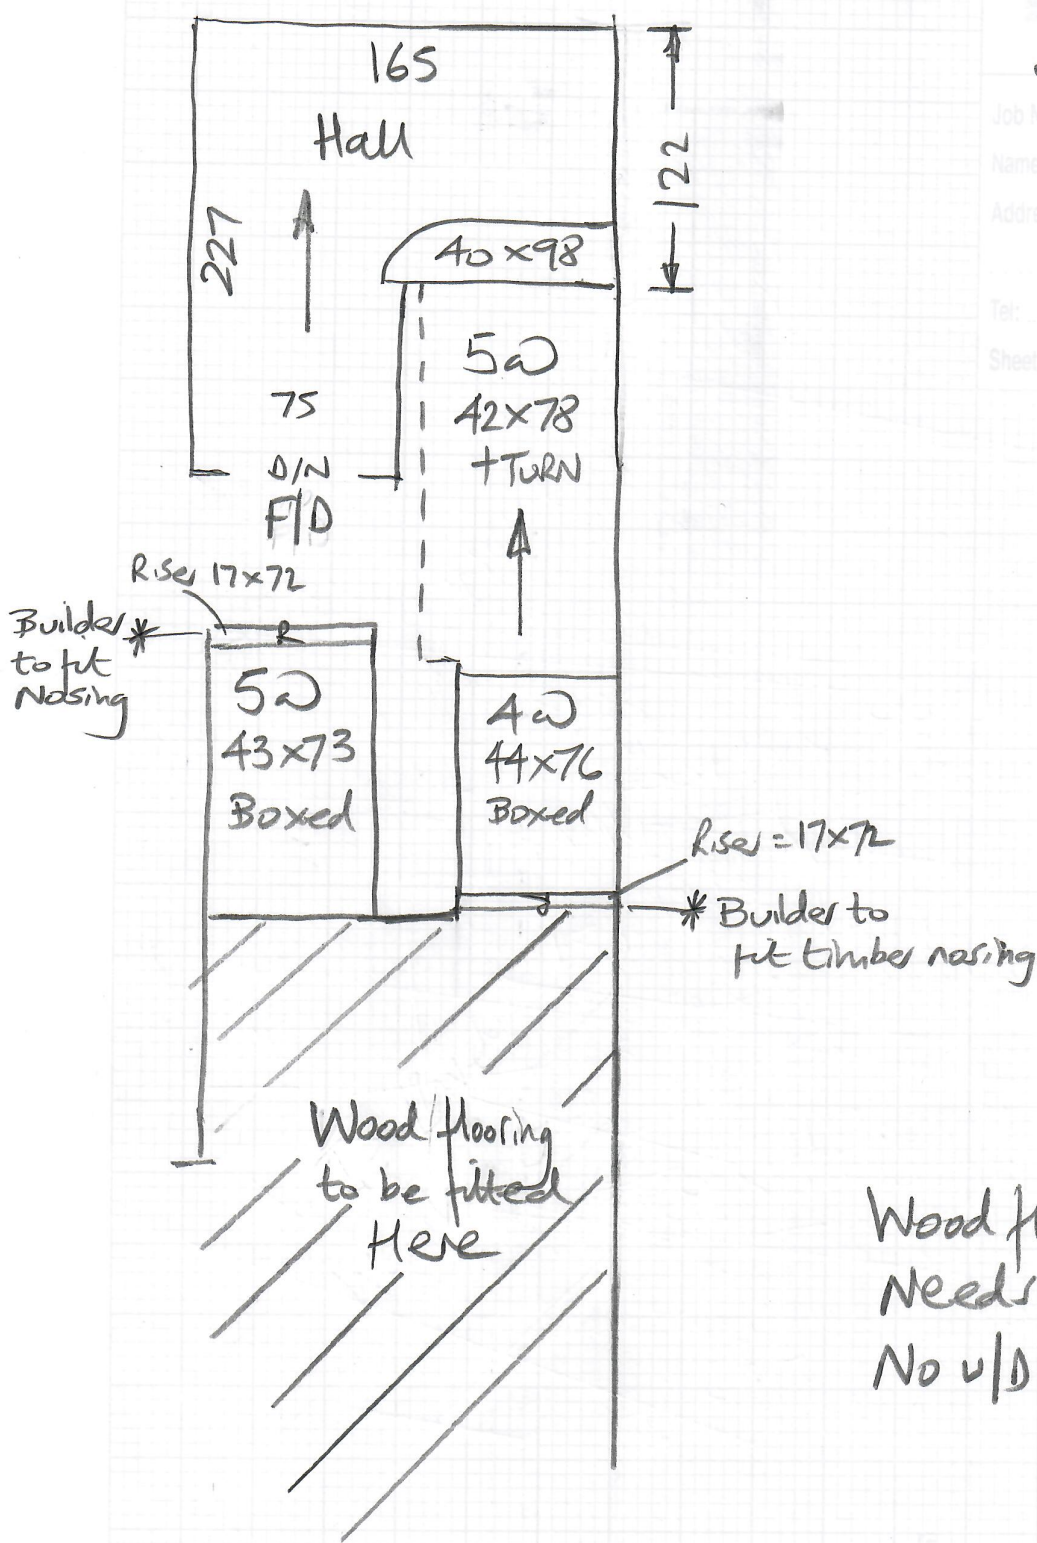 165
Hall
122
227
40x98
5@
42x78
+TURN
75
D/N
F/D
Riser 17x72
Builder *
to fit
Nosing
R
5@
43x73
Boxed
4@
44x76
Boxed
Riser = 17x72
* Builder to
fit timber nosing
Wood flooring
to be fitted
Here
Wood fl
Needs
No u/D
Job N
Name
Addre
Tel:
Sheet